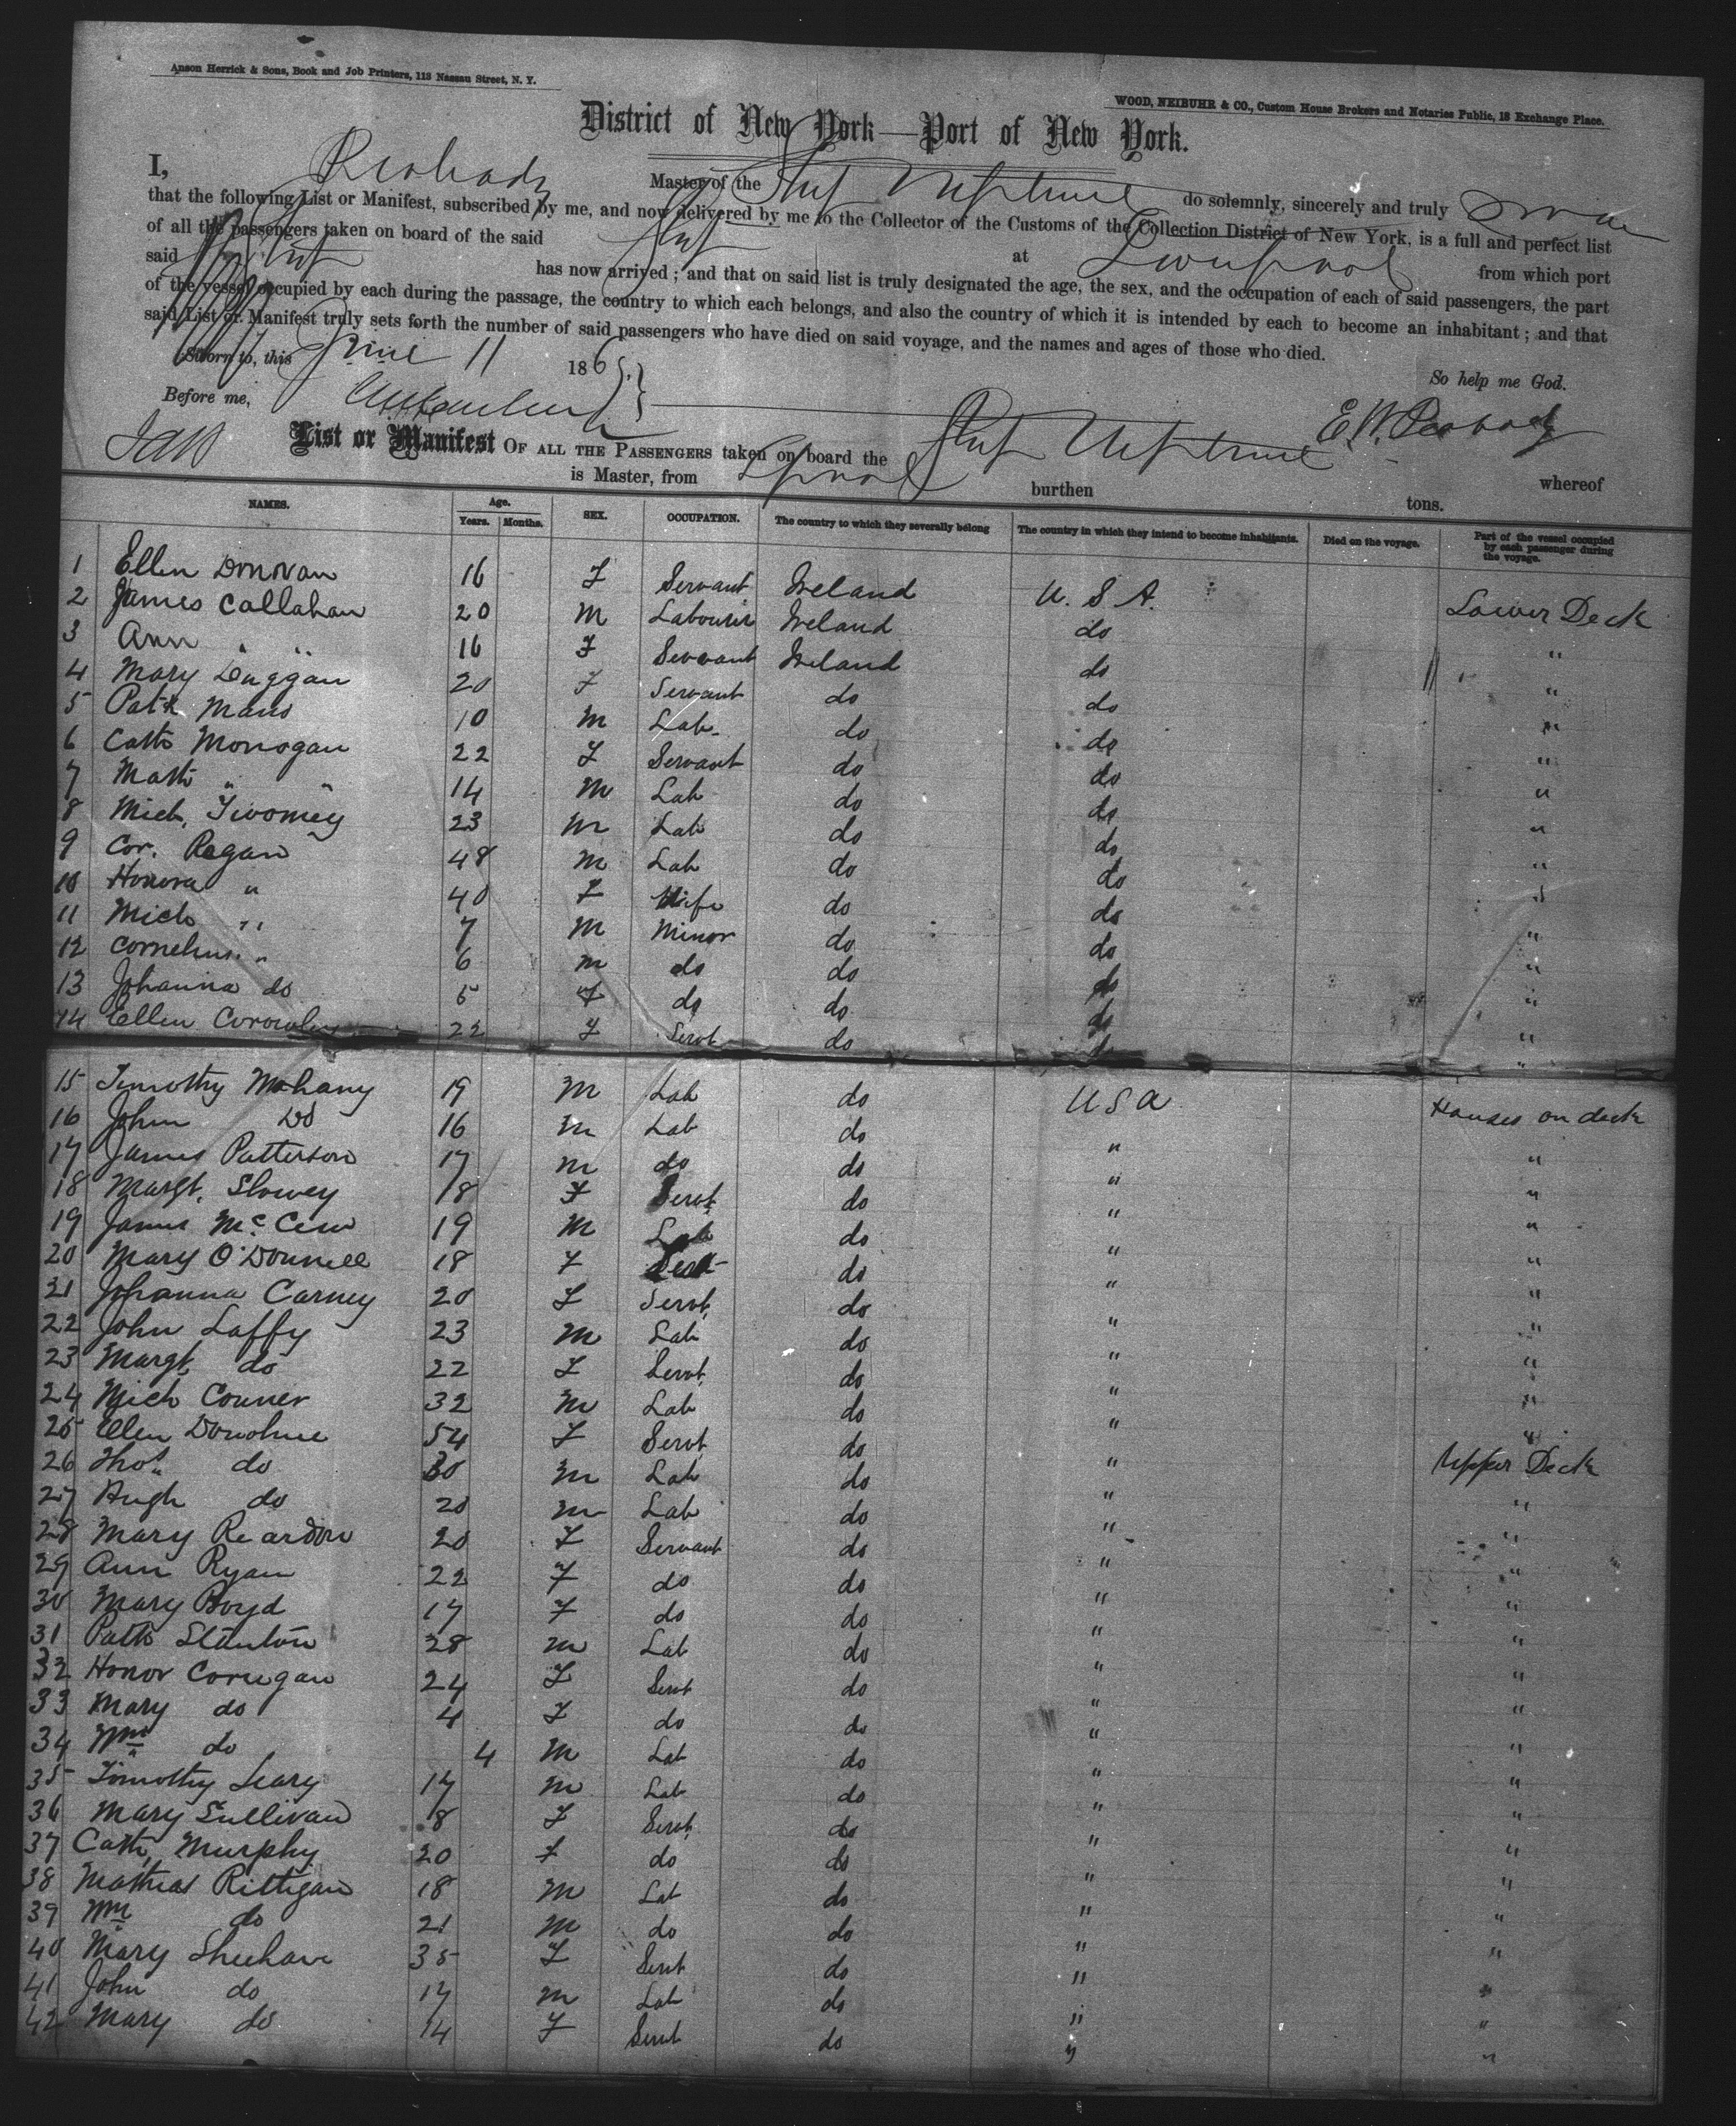 Anson Herrick & Sons, Book and Job Printers, 113 Nassau Street, N. Y.
WOOD, NEIBUHR & CO., Custom House Brokers and Notaries Public, 18 Exchange Place.
District of New York—Port of New York.
I, Peabody Master of the Ship Neptune do solemnly, sincerely and truly Swear
that the following List or Manifest, subscribed by me, and now delivered by me to the Collector of the Customs of the Collection District of New York, is a full and perfect list
of all the passengers taken on board of the said Ship at Liverpool from which port
said Ship has now arrived ; and that on said list is truly designated the age, the sex, and the occupation of each of said passengers, the part
of the vessel occupied by each during the passage, the country to which each belongs, and also the country of which it is intended by each to become an inhabitant ; and that
said List or Manifest truly sets forth the number of said passengers who have died on said voyage, and the names and ages of those who died.
Sworn to, this June 11 186 So help me God.
Before me, E. W. Peabody
List or Manifest OF ALL THE PASSENGERS taken on board the Ship Neptune whereof
is Master, from Lpool burthen tons.
NAMES. Age. Years. Months. SEX. OCCUPATION. The country to which they severally belong The country in which they intend to become inhabitants. Died on the voyage. Part of the vessel occupied by each passenger during the voyage.
1 Ellen Donovan 16 F Servant Ireland U. S A. Lower Deck
2 James Callahan 20 M Labourer Ireland do "
3 Ann " " 16 F Servant Ireland do "
4 Mary Duggan 20 F Servant do do "
5 Patk 10 M Lab do do "
6 Cath Monogan 22 F Servant do do "
7 Math " " 14 M Lab do do "
8 Mich. Twomey 23 M Lab do do "
9 Cor. Regan 48 M Lab do do "
10 Honora " 40 F Wife do do "
11 Mich " 7 M Minor do do "
12 Cornelius " 6 M do do do "
13 Johanna do 5 F do do do "
14 Ellen Corowley 22 F Servt do do "
15 Timothy Mahany 19 M Lab do U S A Houses on deck
16 John Do 16 M Lab do " "
17 James Patterson 17 M do do " "
18 Margt. Slowey 18 F Servt do " "
19 James 19 M Lab do " "
20 Mary O'Donnell 18 F Servt do " "
21 Johanna Carney 20 F Servt. do " "
22 John Laffy 23 M Lab do " "
23 Margt. do 22 F Servt. do " "
24 Mich Conner 32 M Lab do " "
25 Ellen Donohue 54 F Servt do " Upper Deck
26 Thos. do 30 M Lab do " "
27 Hugh do 20 M Lab do " "
28 Mary Reardon 20 F Servant do " "
29 Ann Ryan 22 F do do " "
30 Mary Boyd 17 F do do " "
31 Patk Stanton 28 M Lab do " "
32 Honor Corrigan 24 F Servt do " "
33 Mary do 4 F do do " "
34 Wm do 4 M Lab do " "
35 Timothy Leary 17 M Lab do " "
36 Mary Sullivan 8 F Servt. do " "
37 Cath. Murphy 20 F do do " "
38 Mathias Rittigan 18 M Lab do " "
39 Wm do 21 M do do " "
40 Mary Sheehan 35 F Servt do " "
41 John do 17 M Lab do " "
42 Mary do 14 F Servt do " "